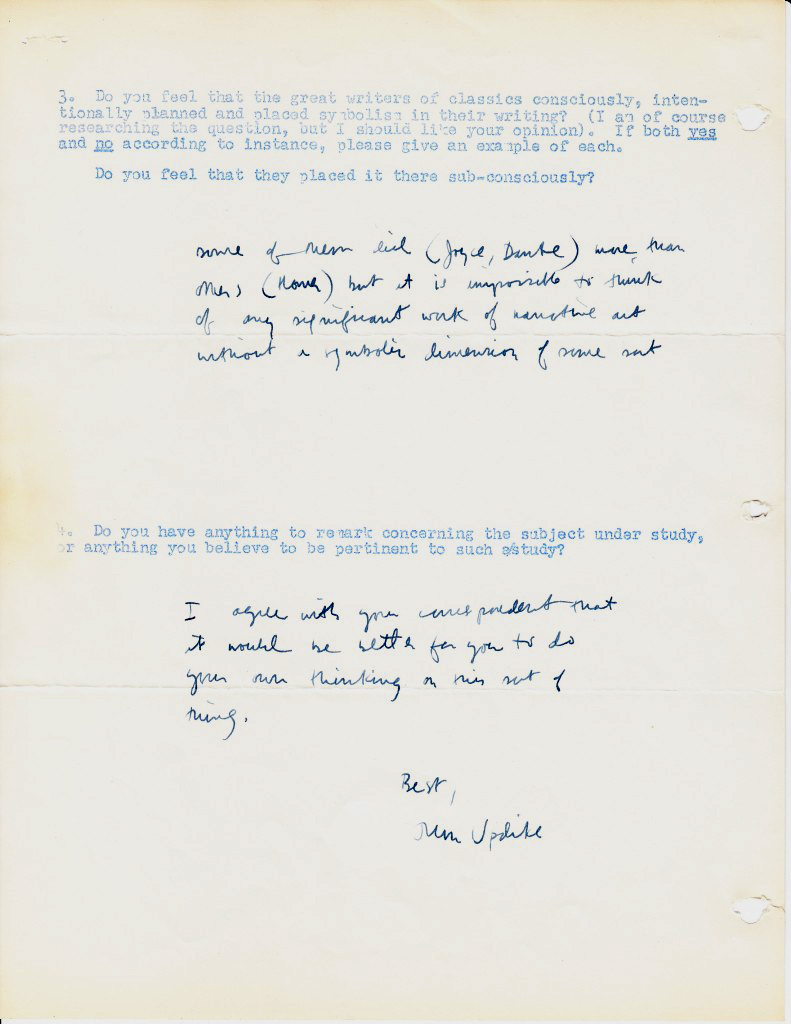 3. Do you feel that the great writers of classics consciously, inten-
tionally planned and placed symbolism in their writing? (I am of course
researching the question, but I should like your opinion). If both yes
and no according to instance, please give an example of each.
Do you feel that they placed it there sub-consciously?
some of them did (Joyce, Dante) more than
others (Homer) but it is impossible to think
of any significant work of narrative art
without a symbolic dimension of some sort
4. Do you have anything to remark concerning the subject under study,
or anything you believe to be pertinent to such study?
I agree with your correspondent that
it would be better for you to do
your own thinking on this sort of
thing.
Best,
John Updike